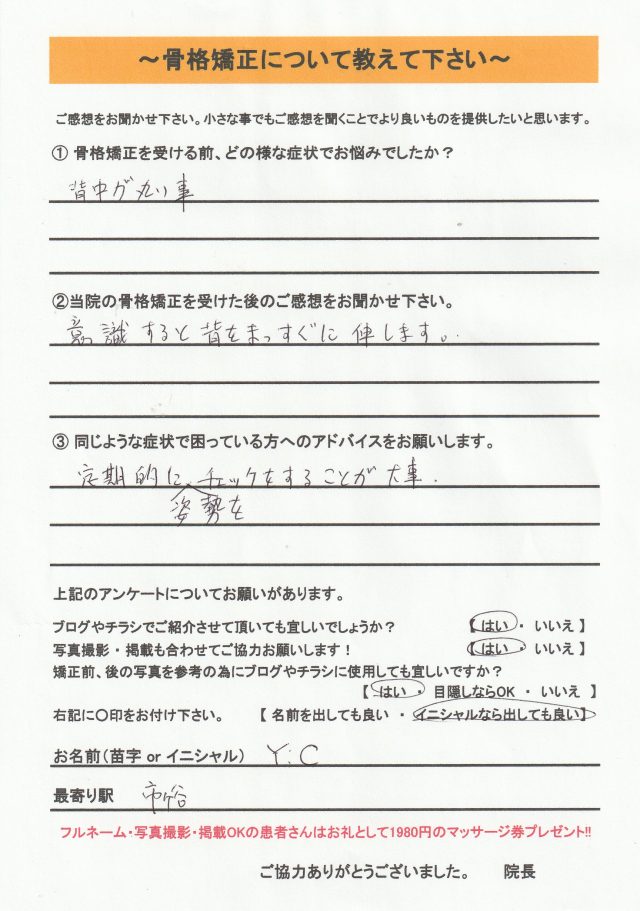 ～骨格矯正について教えて下さい～
ご感想をお聞かせ下さい。小さな事でもご感想を聞くことでより良いものを提供したいと思います。
① 骨格矯正を受ける前、どの様な症状でお悩みでしたか？
背中が丸い事
②当院の骨格矯正を受けた後のご感想をお聞かせ下さい。
意識すると背をまっすぐに伸します。
③ 同じような症状で困っている方へのアドバイスをお願いします。
定期的に、チェックをすることが大事.
姿勢を
上記のアンケートについてお願いがあります。
ブログやチラシでご紹介させて頂いても宜しいでしょうか？ 【 はい ・ いいえ 】
写真撮影・掲載も合わせてご協力お願いします！ 【 はい ・ いいえ 】
矯正前、後の写真を参考の為にブログやチラシに使用しても宜しいですか？
【 はい ・ 目隠しならOK ・ いいえ 】
右記に〇印をお付け下さい。 【 名前を出しても良い ・ イニシャルなら出しても良い】
お名前（苗字 or イニシャル） Y:C
最寄り駅 市ヶ谷
フルネーム・写真撮影・掲載OKの患者さんはお礼として1980円のマッサージ券プレゼント!!
ご協力ありがとうございました。 院長